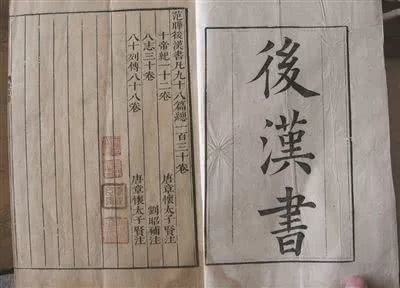 後漢書
范曄後漢書凡九十八篇總一百三十卷
十帝紀一十二卷
唐章懷太子賢注
八志三十卷
劉昭補注
八十列傳八十八卷
唐章懷太子賢注